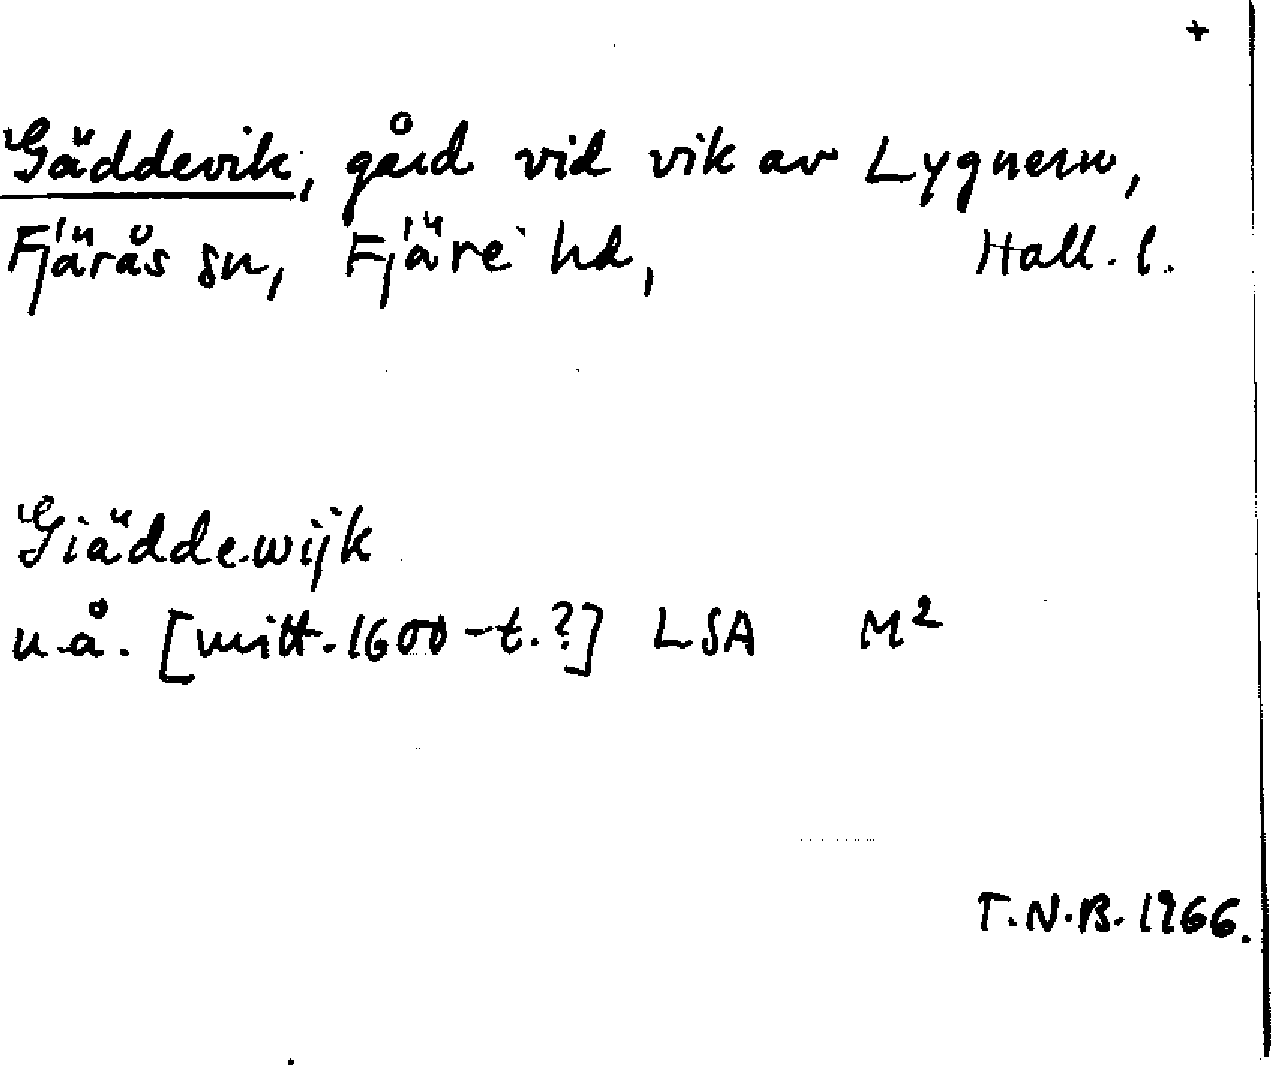 +
Gäddevik, gård vid vik av Lygnern,
Fjärås sn, Fjäre hd, Hall. l.
Giäddewijk
u.å. [mitt. 1600-t.?] LSA M²
T.N.B. 1966.